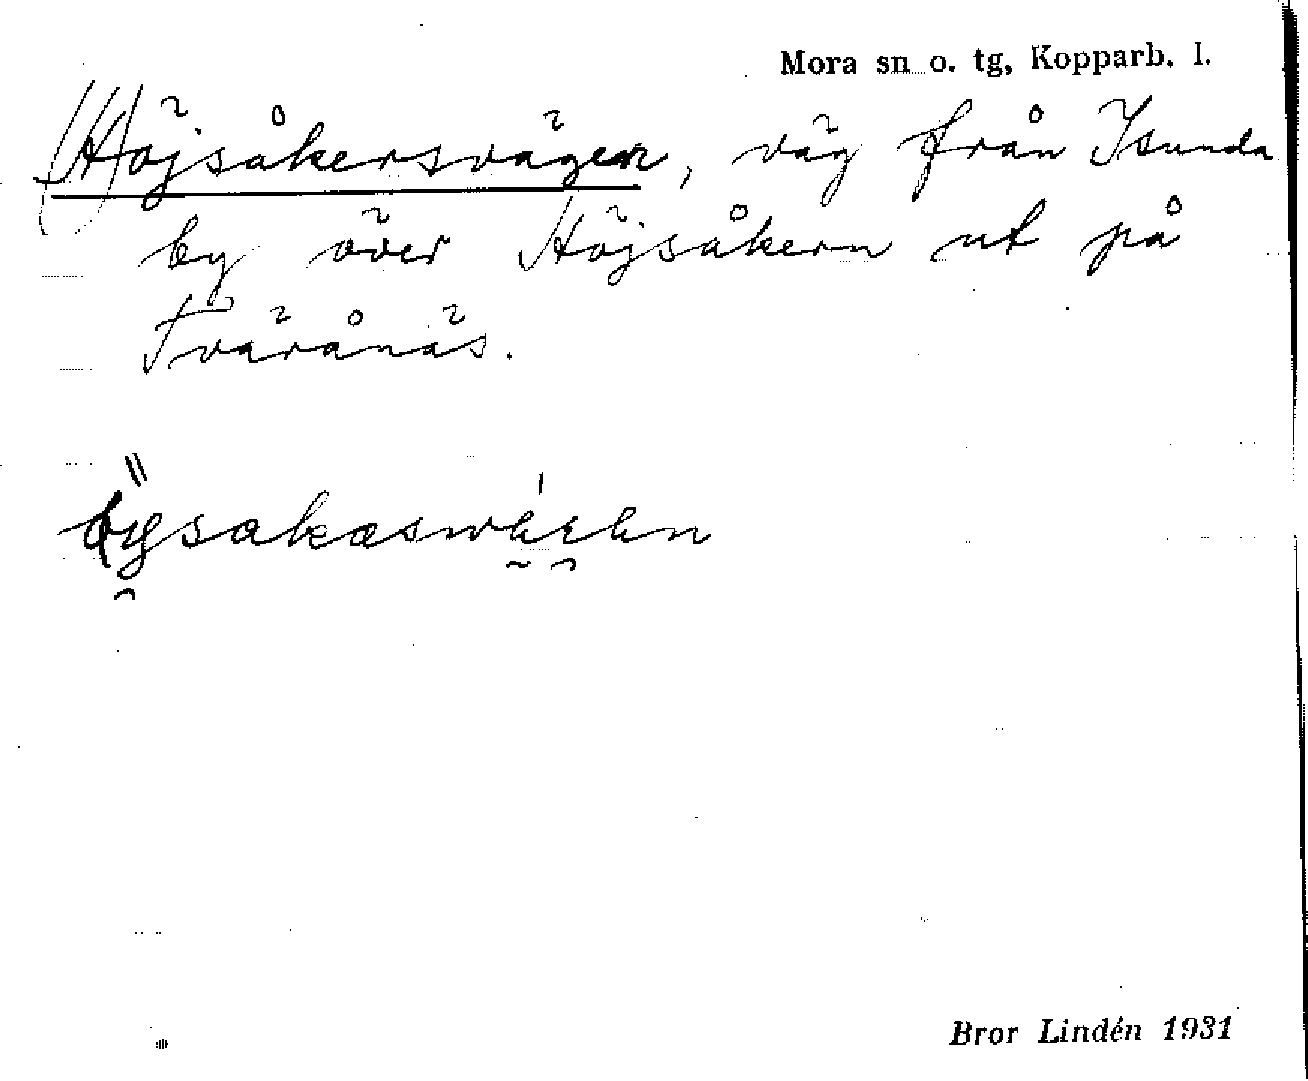 Mora sn o. tg, Kopparb. l.
(H)öjsåkersvägen, väg från Isunda
by över Höjsåkern ut på
Tväránäs.
Bror Lindén 1931